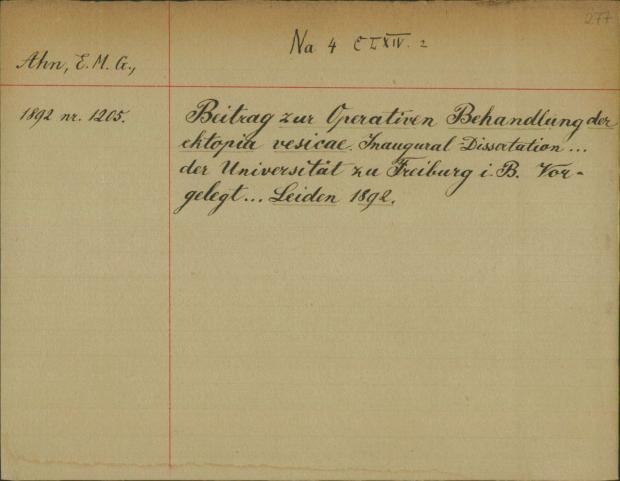 277
Na 4 CLXIV. 2
Ahn, E. M. G.,
1892 nr. 1205.
Beitrag zur Operativen Behandlung der
ektopia vesicae. Inaugural Dissertation ...
der Universität zu Freiburg i. B. Vor-
gelegt ... Leiden 1892.